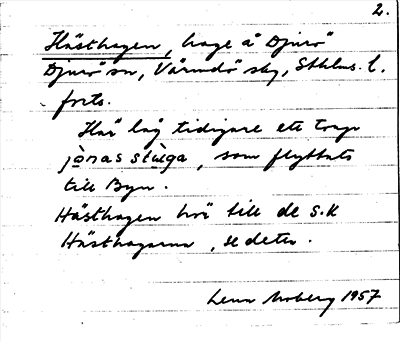 2.
Hästhagen, hage å Djurö
Djurö sn, Värmdö skg, Sthlms. l.
forts.
Här låg tidigare ett torp
jònas stùga, som flyttats
till Byn.
Hästhagen hör till de s.k
Hästhagarna, se detta.
Lena Moberg 1957